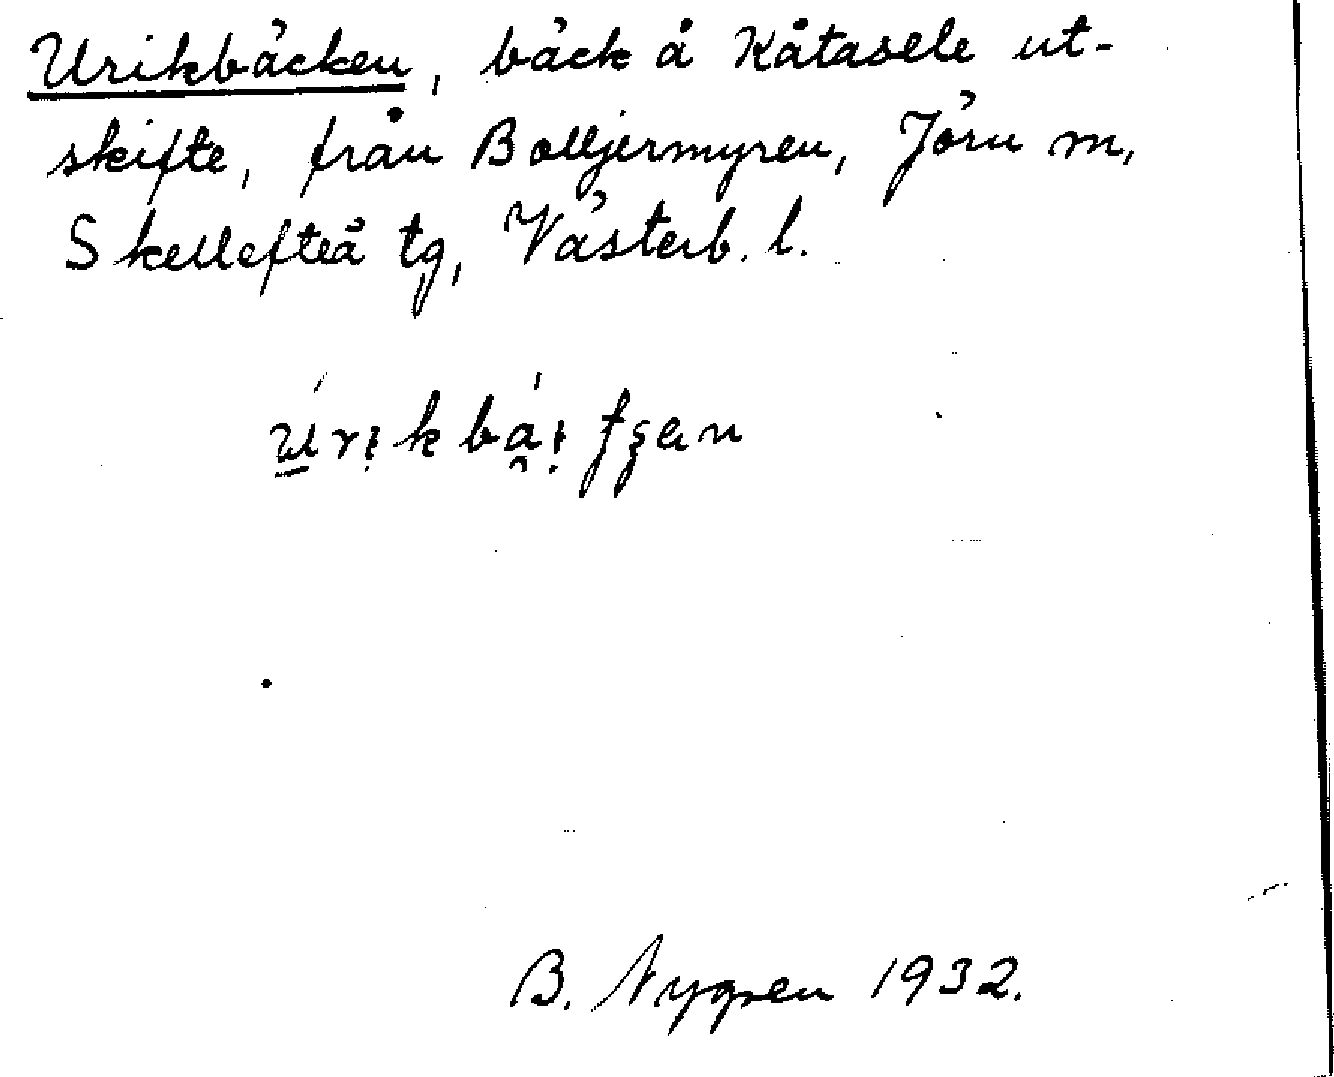 Urikbäcken, bäck å Kåtasele ut-
skifte, från Bolljermyren, Jörn m,
Skellefteå tg, Västerb. l.
B. Nygren 1932.